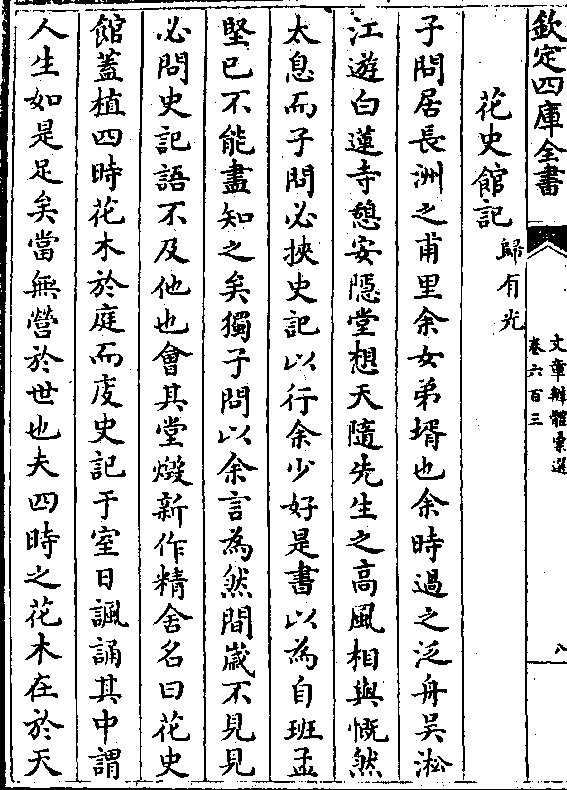 欽定四庫全書
文章辨體彙選
卷六百三
八
花史館記
歸有光
子問居長洲之甫里余女弟壻也余時過之泛舟吳淞
江遊白蓮寺憩安隱堂想天隨先生之高風相與慨然
太息而子問必挾史記以行余少好是書以為自班孟
堅已不能盡知之矣獨子問以余言為然間歲不見見
必問史記語不及他也會其堂燬新作精舍名曰花史
館蓋植四時花木於庭而庋史記于室日諷誦其中謂
人生如是足矣當無營於世也夫四時之花木在於天